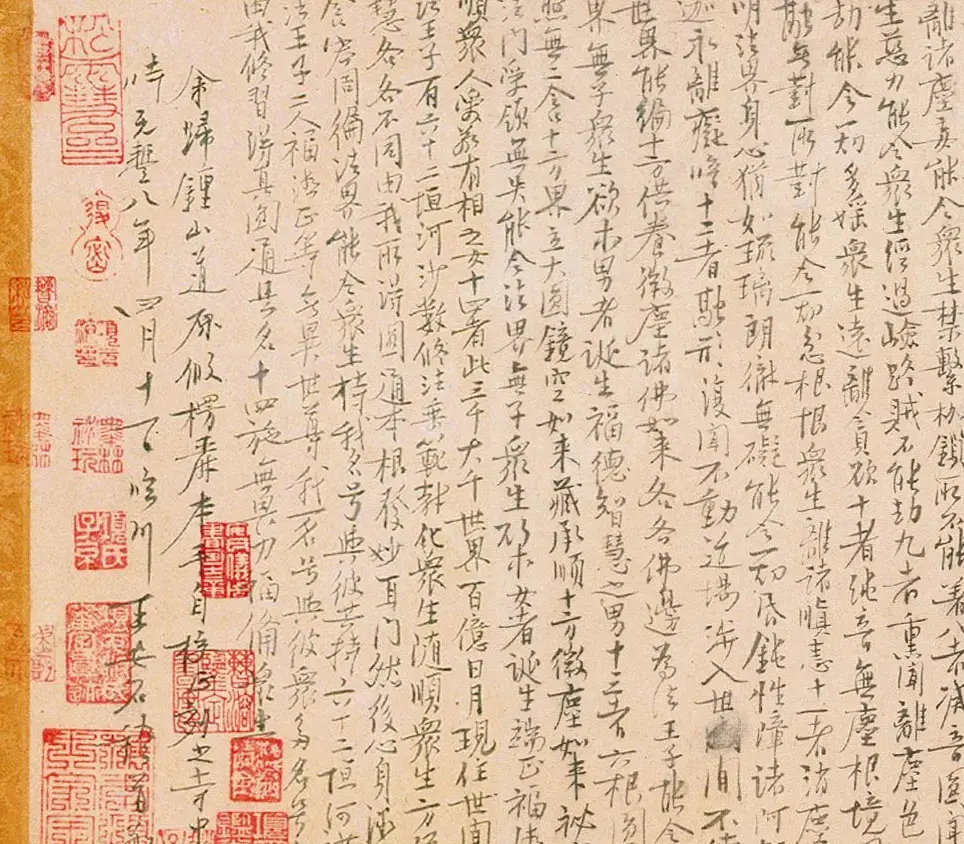 離諸塵妄能令衆生禁繫枷鎖所不能著八者滅音圓聞
生慈力能令衆生經過嶮路賊不能劫九者熏聞離塵色
劫能令一切多婬衆生遠離貪欲十者純音無塵根境圓
融無對所對能令一切忿恨衆生離諸瞋恚十一者銷塵
明法界身心猶如琉璃朗徹無礙能令一切昏鈍性障諸阿
迦永離癡暗十二者融形復聞不動道場涉入世間不
世界能徧十方供養微塵諸佛如來各各佛邊為法王子能令
界無子衆生欲求男者誕生福德智慧之男十三者六根圓
照無二含十方界立大圓鏡空如來藏承順十方微塵如來祕
法門受領無失能令法界無子衆生欲求女者誕生端正福德
順衆人愛敬有相之女十四者此三千大千世界百億日月現住世間
法王子有六十二恒河沙數修法垂範教化衆生隨順衆生方便
慧各各不同由我所得圓通本根發妙耳門然後心身微
含容周徧法界能令衆生持我名号與彼共持六十二恒河
法王子二人福德正等無異世尊我一名号與彼衆多名号
由我修習得真圓通是名十四施無畏力福備衆生
余歸鍾山道原假楞嚴本手自校正刻之寺中
時元豐八年四月十一日臨川王安石稽首敬
項氏
子京